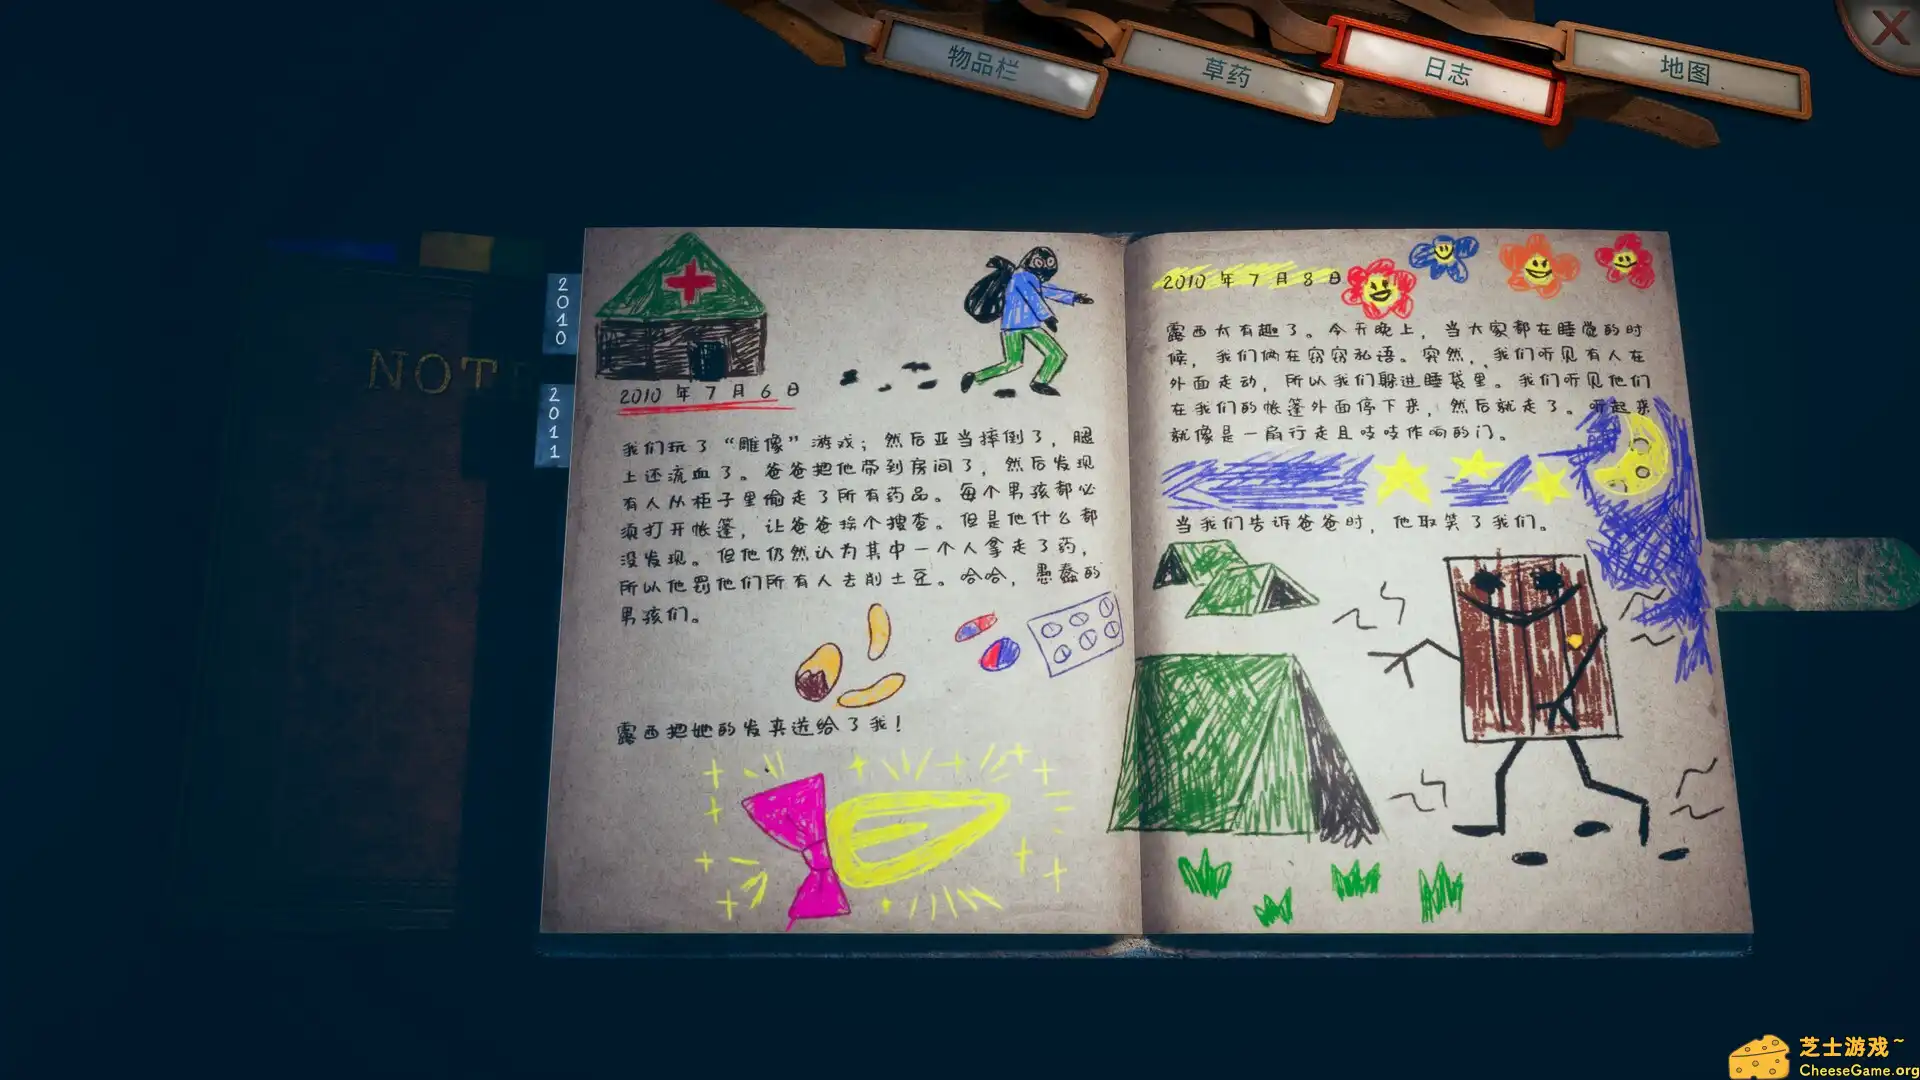 物品栏
草药
日志
地图
NOT
2010
2011
2010年7月6日
我们玩了“雕像”游戏；然后亚当摔倒了，腿
上还流血了。爸爸把他带到房间了，然后发现
有人从柜子里偷走了所有药品。每个男孩都必
须打开帐篷，让爸爸挨个搜查。但是他什么都
没发现。但他仍然认为其中一个人拿走了药，
所以他罚他们所有人去削土豆。哈哈，愚蠢的
男孩们。
露西把她的发夹送给了我！
2010年7月8日
露西太有趣了。今天晚上，当大家都在睡觉的时
候，我们俩在窃窃私语。突然，我们听见有人在
外面走动，所以我们躲进睡袋里。我们听见他们
在我们的帐篷外面停下来，然后就走了。听起来
就像是一扇行走且吱吱作响的门。
当我们告诉爸爸时，他取笑了我们。
芝士游戏~
CheeseGame.org